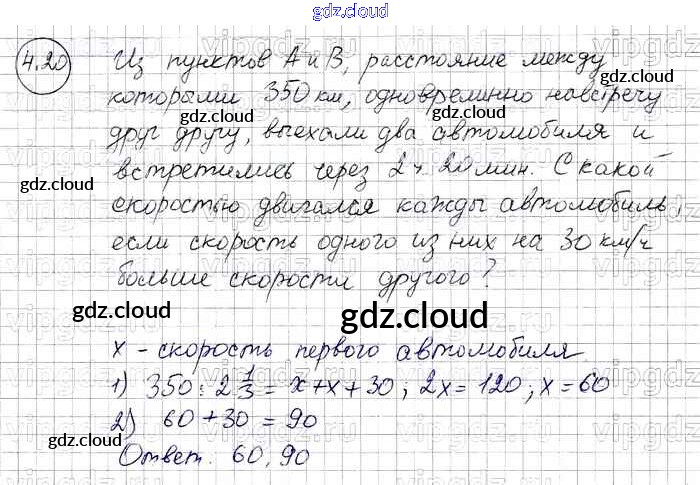 gdz.cloud
4.20 Из пунктов А и В, расстояние между
которыми 350 км, одновреминно навстречу
gdz.cloud
друг другу, выехали два автомобиля и
gdz.cloud
встретились через 2 ч 20 мин. С какой
gdz.cloud
скоростью двигался кажды автомобиль,
если скорость одного из них на 30 км/ч
больше скорости другого?
gdz.cloud
gdz.cloud
gdz.cloud
x - скорость первого автомобиля
1) 350 : 2 1/3 = x+x+30; 2x=120; x=60
2) 60+30=90
gdz.cloud
gdz.cloud
Ответ. 60, 90
gdz.cloud